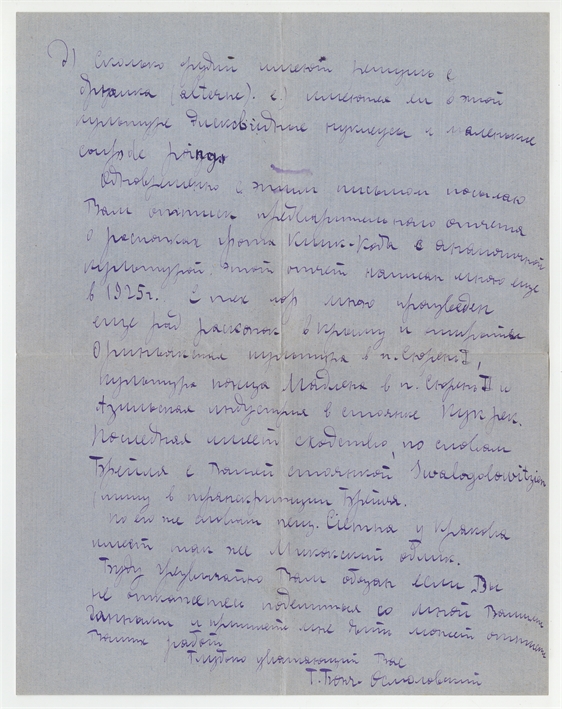 д) сколько орудий имеют ретушь с
брюшка (alterne). е) имеются ли в этой
культуре дисковидные нуклеусы и маленькие
coups de poings
Одновременно с этим письмом посылаю
Вам оттиск предварительного отчета
о раскопках грота Киик-Коба с аналогичной
культурой. Этот отчет написан мною еще
в 1925г. С тех пор мною произведен
еще ряд раскопок в Крыму и открыты
Ориньякская культура в п. Сюрень I,
культура конца Мадлена в п. Сюрень II и
Азильская индустрия в стоянке Кукрек.
Последняя имеет сходство, по словам
Брейля с Вашей стоянкой Swalogolowitzien
/пишу в транскрипции Брейля.
По его же словам пещ. у Кракова
имеет так же Микокский облик.
Буду чрезвычайно Вам обязан если Вы
не откажетесь поделиться со мной Вашими
данными и пришлете мне быть может оттиски
Ваших работ
Глубоко уважающий Вас
Г. Бонч-Осмоловский